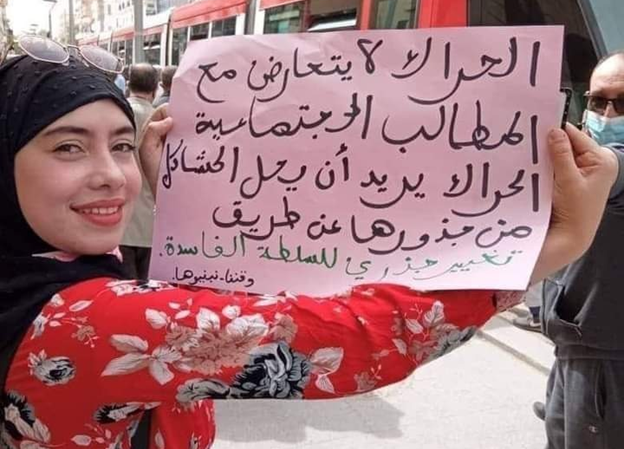 الحراك لا يتعارض مع
المطالب الاجتماعية
الحراك يريد أن يحل المشاكل
من جذورها عن طريق
تغيير جذري للسلطة الفاسدة.
وقتنا-نبنيوها.